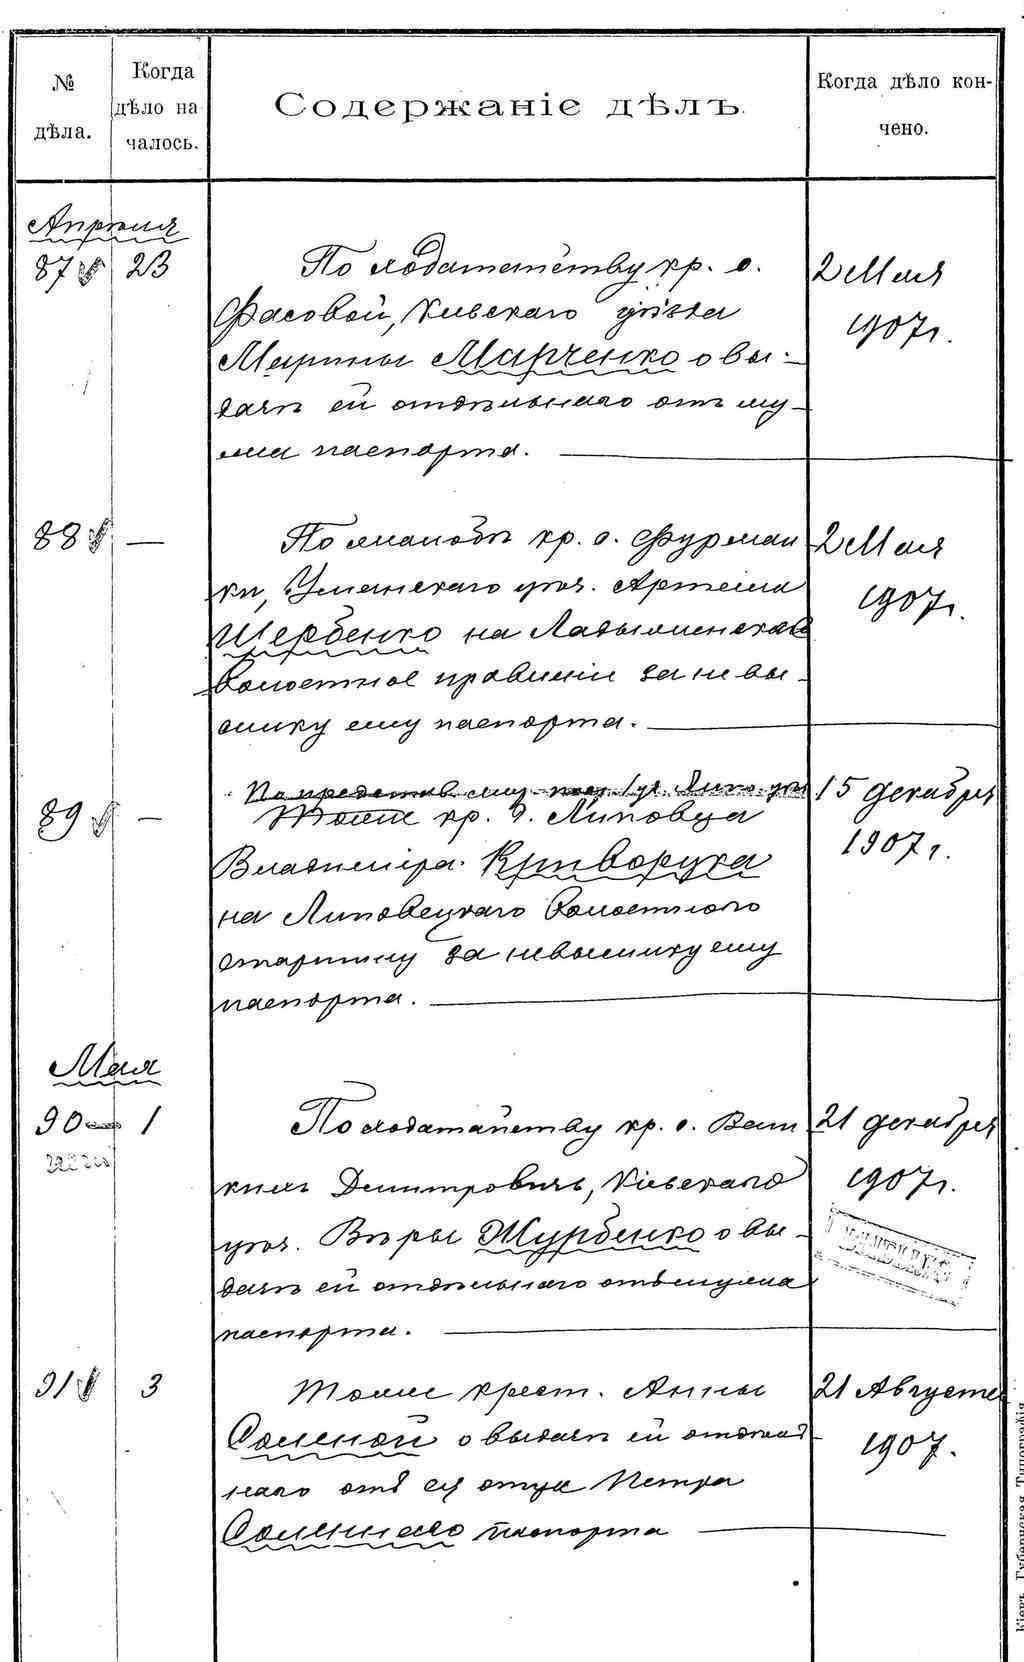 № дѣла.
Когда дѣло на-
чалось.
Содержаніе дѣлъ.
Когда дѣло кон-
чено.
Апрѣля
87 23 По ходатайству кр. с. 2 Мая
Фасовой, Кіевскаго уѣзда 1907 г.
Марины Марченко о вы-
дачѣ ей отдѣльнаго отъ му-
жа паспорта.
88 — По жалобѣ кр. с. Фурман 2 Мая
ки, Уманскаго уѣз. Артема 1907 г.
Щербенко на Ладыженское
волостное правленіе за невы-
сылку ему паспорта.
По представ.
89 — Тоже кр. д. Липовца 15 декабря
Владиміра Криворука 1907 г.
на Липовецкаго волостного
старшину за невысылку ему
паспорта.
Мая
90 1 По ходатайству кр. с. Вели 21 декабря
кихъ Дмитровичъ, Кіевскаго 1907 г.
уѣз. Вѣры Журбенко о вы-
дачѣ ей отдѣльнаго отъ мужа
паспорта.
91 3 Тоже крест. Анны 21 Августа
Соленой о выдачѣ ей отдѣль- 1907.
наго отъ ея отца Петра
Соленного паспорта
Кіевъ. Губернская Типографія